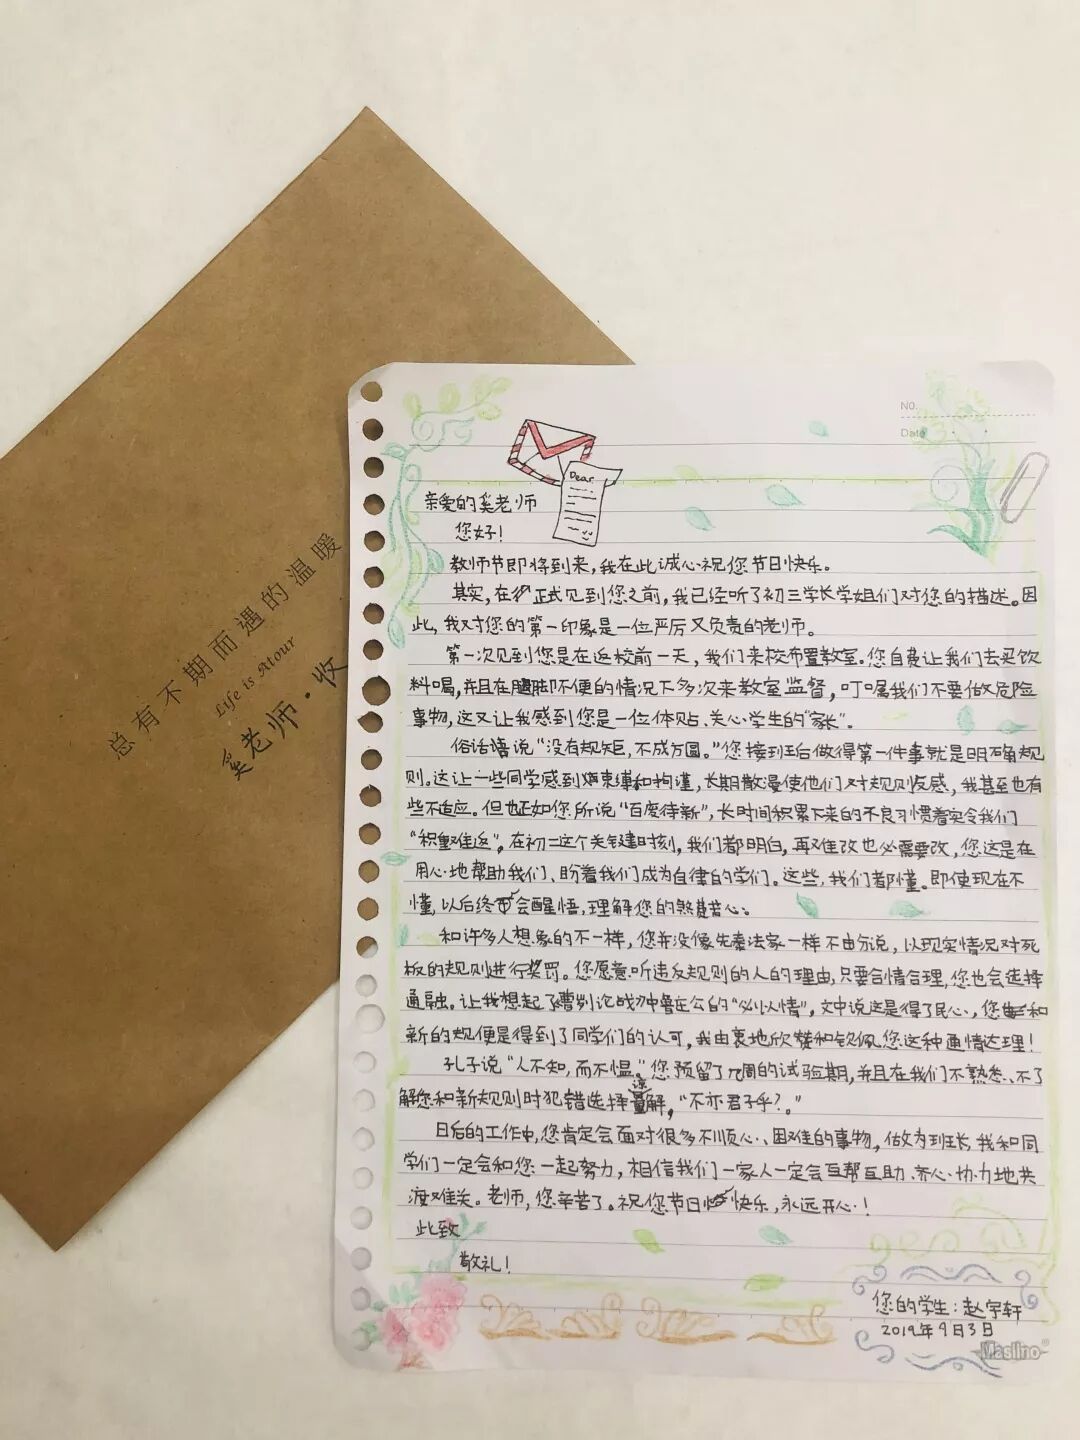 总有不期而遇的温暖
Life is Atour
奚老师·收
No.
Date
Dear
亲爱的奚老师
您好!
教师节即将到来,我在此诚心祝您节日快乐。
其实,在正式见到您之前,我已经听了初三学长学姐们对您的描述。因
此,我对您的第一印象是一位严厉又负责的老师。
第一次见到您是在返校前一天,我们来校布置教室。您自费让我们去买饮
料喝,并且在腿脚不便的情况下多次来教室监督,叮嘱我们不要做危险
事物,这又让我感到您是一位体贴、关心学生的“家长”。
俗话说“没有规矩,不成方圆。”您接班后做得第一件事就是明确规
则。这让一些同学感到束缚和拘谨,长期散漫使他们对规则反感,我甚至也有
些不适应。但也正如您所说“百废待新”,长时间积累下来的不良习惯着实令我们
“积重难返”,在初二这个关键时刻,我们都明白,再难改也必需要改,您这是在
用心地帮助我们、盼着我们成为自律的学们。这些,我们都懂。即使现在不
懂,以后终会醒悟,理解您的煞费苦心。
和许多人想象的不一样,您并没像先秦法家一样不由分说,以现实情况对死
板的规则进行奖罚。您愿意听违反规则的人的理由,只要合情合理,您也会选择
通融。让我想起了《曹刿论战》中鲁庄公的“必以情”,文中说这是得了民心,您和
新的规便是得到了同学们的认可,我由衷地欣赞和钦佩您这种通情达理!
孔子说“人不知,而不愠。”您预留了几周的试验期,并且在我们不熟悉、不了
解您和新规则时犯错选择谅解,“不亦君子乎?。”
日后的工作中,您肯定会面对很多不顺心、困难的事物,做为班长,我和同
学们一定会和您一起努力,相信我们一家人一定会互帮互助、齐心协力地共
渡难关。老师,您辛苦了。祝您节日快乐,永远开心!
此致
敬礼!
您的学生:赵宇轩
2019年9月3日
Maslino